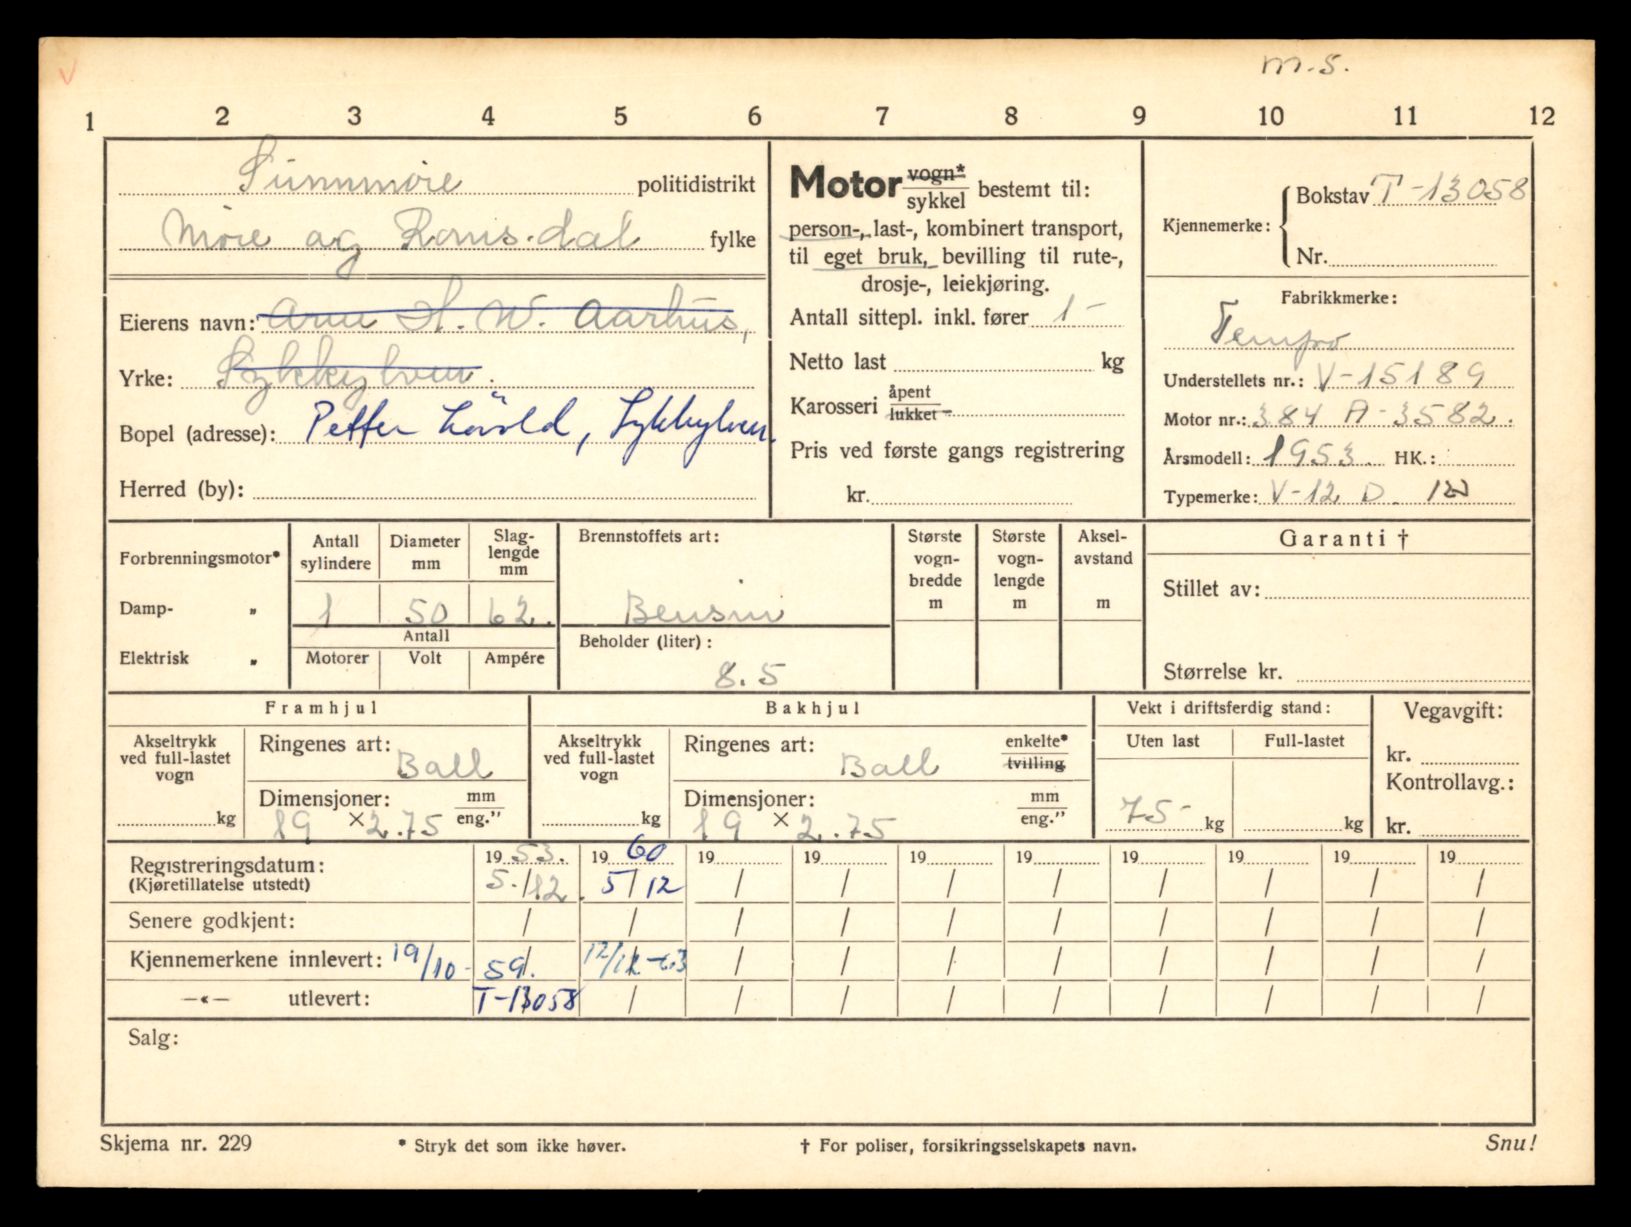 m.s.
1 2 3 4 5 6 7 8 9 10 11 12
Sunnmøre politidistrikt
Møre og Romsdal fylke
Eierens navn: Arne H. W. Aarhus,
Yrke: Sykkylven.
Bopel (adresse): Petter Løvold, Sykkylven.
Herred (by):
Motor vogn* sykkel bestemt til:
person-, last-, kombinert transport,
til eget bruk, bevilling til rute-,
drosje-, leiekjøring.
Antall sittepl. inkl. fører 1
Netto last kg
Karosseri åpent lukket
Pris ved første gangs registrering
kr.
Kjennemerke: Bokstav T-13058
Nr.
Fabrikkmerke:
Tempo
Understellets nr.: V-15189
Motor nr.: 384 A-3582.
Årsmodell: 1953. HK.:
Typemerke: V-12 D.
Forbrenningsmotor* Antall sylindere Diameter mm Slaglengde mm
Damp- „ 1 50 62.
Elektrisk „ Antall
Motorer Volt Ampére
Brennstoffets art:
Bensin
Beholder (liter):
8.5
Største vognbredde m Største vognlengde m Akselavstand m
Garanti †
Stillet av:
Størrelse kr.
Framhjul
Akseltrykk ved full-lastet vogn kg
Ringenes art: Ball
Dimensjoner: mm eng.”
19 × 2.75
Bakhjul
Akseltrykk ved full-lastet vogn kg
Ringenes art: Ball enkelte* tvilling
Dimensjoner: mm eng.”
19 × 2.75
Vekt i driftsferdig stand:
Uten last Full-lastet
75 kg kg
Vegavgift:
kr.
Kontrollavg.:
kr.
Registreringsdatum: 1953. 1960 19 19 19 19 19 19 19 19
(Kjøretillatelse utstedt) 5./12. 5/12 / / / / / / / /
Senere godkjent: / / / / / / / / / /
Kjennemerkene innlevert: 19/10-59. 12/12-63 / / / / / / / /
—«— utlevert: T-13058 / / / / / / / / /
Salg:
Skjema nr. 229 * Stryk det som ikke høver. † For poliser, forsikringsselskapets navn. Snu!